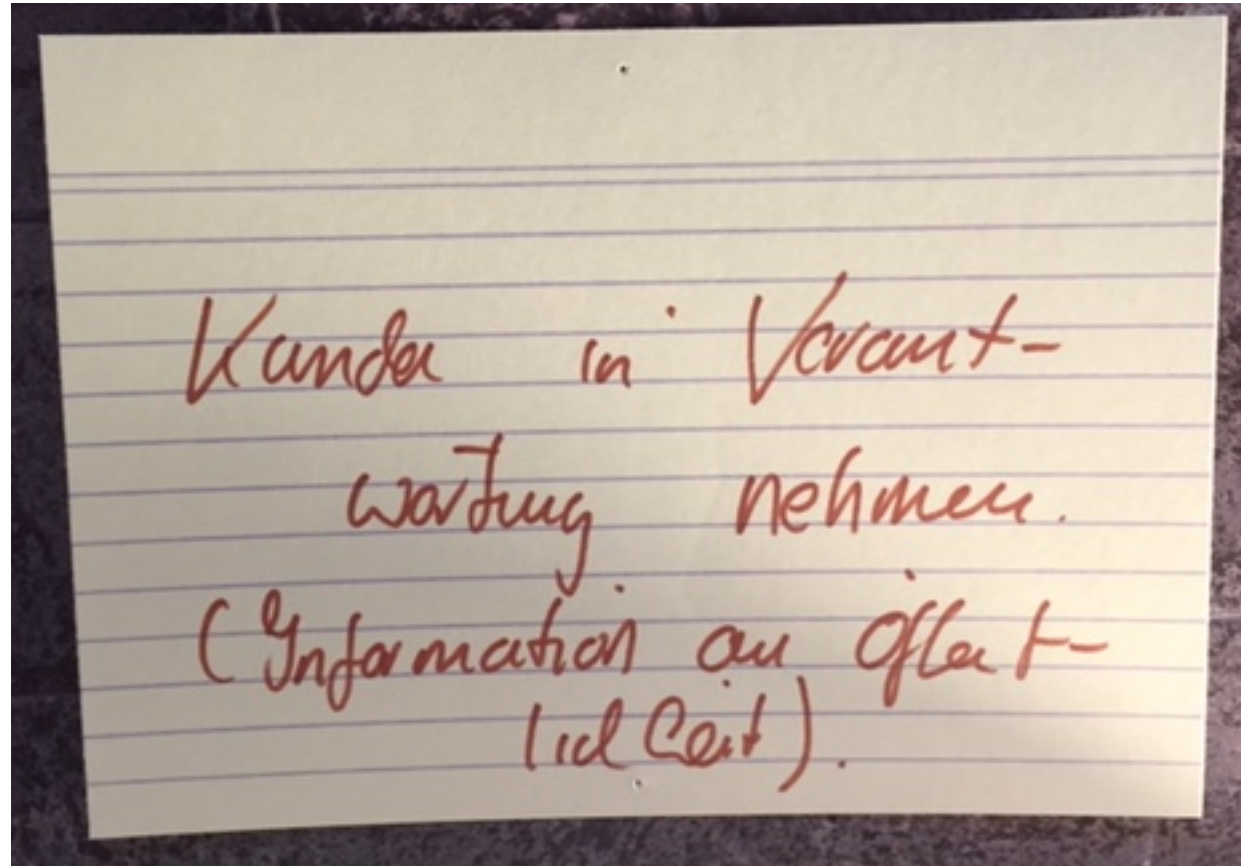 Kunden in Verant-
wortung nehmen.
(Information an Öffent-
lichkeit).